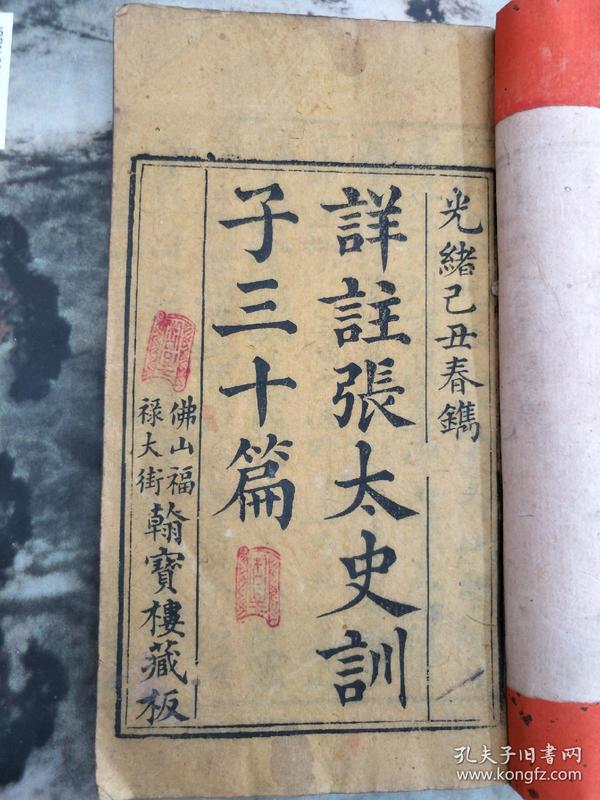 光緒己丑春鐫
詳註張太史訓
子三十篇
佛山福
禄大街
翰寶樓藏板
孔夫子旧书网
www.kongfz.com